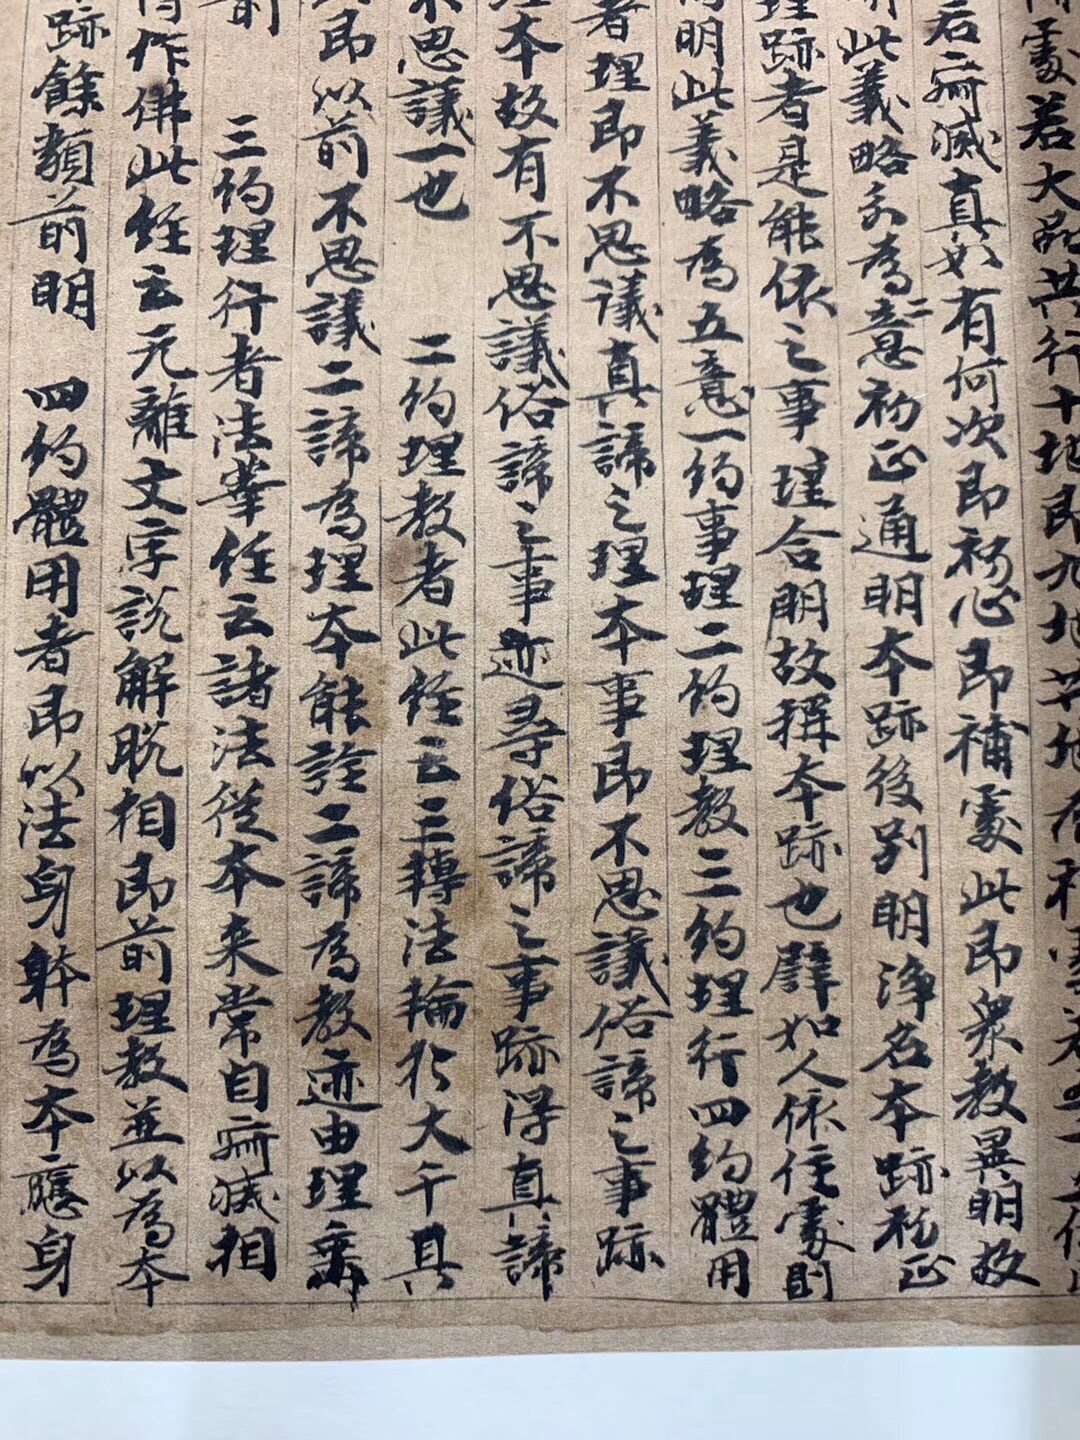 處若大品共行十地即九地
若寂滅真如有何次即初心即補處此即衆教異明故
此義略分為二意初正通明本跡後別明淨名本跡初正
理跡者是能依之事理合明故稱本跡也譬如人依住處則
明此義略為五意一約事理二約理教三約理行四約體用
者理即不思議真諦之理本事即不思議俗諦之事跡
理本故有不思議俗諦之事迹尋俗諦之事跡得真諦
不思議一也　二約理教者此經云三轉法輪於大千具
即以前不思議二諦為理本能詮二諦為教迹由理故
前　三約理行者法華經云諸法從本来常自寂滅相
得作佛此經云无離文字說解脫相即前理教並以為本
跡餘類前明　四約體用者即以法身躰為本應身